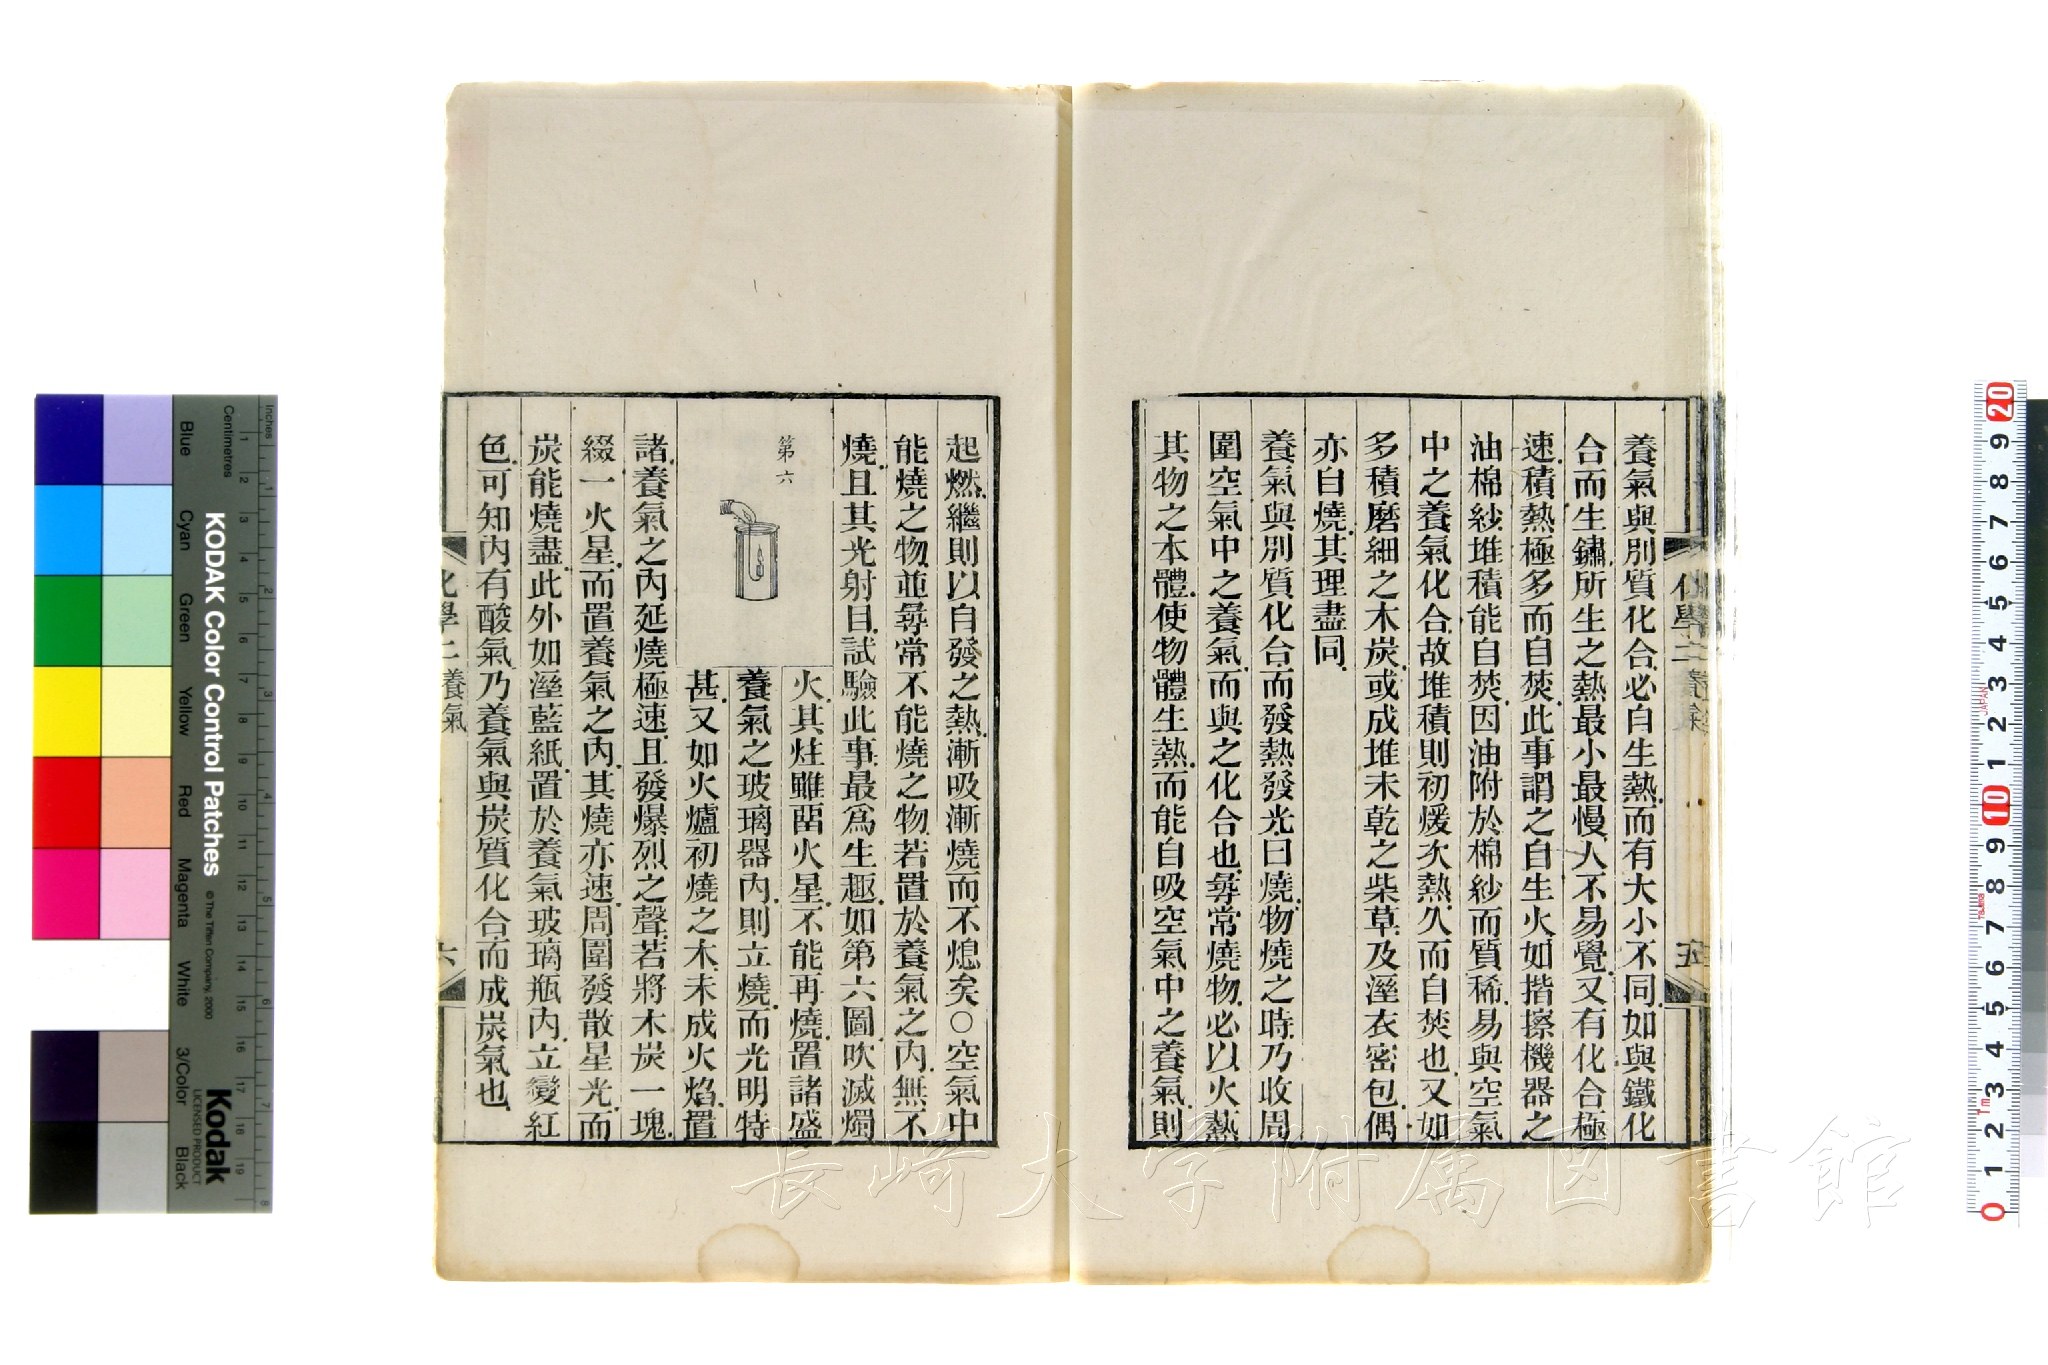 養氣與別質化合必自生熱而有大小不同如與鐵化
合而生鏽所生之熱最小最慢人不易覺又有化合極
速積熱極多而自焚此事謂之自生火如揩擦機器之
油棉紗堆積能自焚因油附於棉紗而質稀易與空氣
中之養氣化合故堆積則初煖次熱久而自焚也又如
多積磨細之木炭或成堆未乾之柴草及溼衣密包偶
亦自燒其理盡同
養氣與別質化合而發熱發光曰燒物燒之時乃收周
圍空氣中之養氣而與之化合也尋常燒物必以火熱
其物之本體使物體生熱而能自吸空氣中之養氣則
化學二 養氣
五
起燃繼則以自發之熱漸吸漸燒而不熄矣○空氣中
能燒之物並尋常不能燒之物若置於養氣之內無不
燒且其光射目試驗此事最爲生趣如第六圖吹滅燭
第六
火其炷雖畱火星不能再燒置諸盛
養氣之玻璃器內則立燒而光明特
甚又如火爐初燒之木未成火焰置
諸養氣之內延燒極速且發爆烈之聲若將木炭一塊
綴一火星而置養氣之內其燒亦速周圍發散星光而
炭能燒盡此外如溼藍紙置於養氣玻璃瓶內立變紅
色可知內有酸氣乃養氣與炭質化合而成炭氣也
化學二 養氣
六
長崎大学附属図書館
KODAK Color Control Patches
© The Tiffen Company, 2000
Kodak
LICENSED PRODUCT
Inches
Centimetres
Blue
Cyan
Green
Yellow
Red
Magenta
White
3/Color
Black
1 2 3 4 5 6 7 8 9 10 11 12 13 14 15 16 17 18 19
1 2 3 4 5 6 7 8
20 9 8 7 6 5 4 3 2 1 10 9 8 7 6 5 4 3 2 1 0
JAPAN
1m